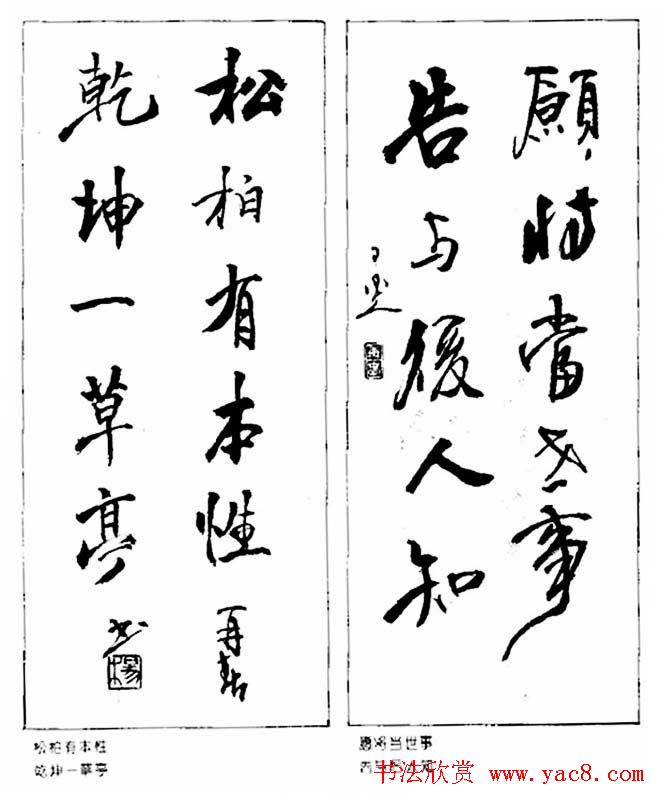 願將當世事
告与後人知
松柏有本性
乾坤一草亭
松柏有本性
乾坤一草亭
愿将当世事
书法欣赏 www.yac8.com